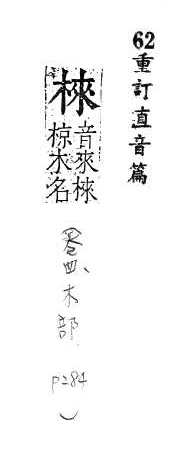 62重訂直音篇
棶
音來棶
椋木名
(卷四、木部 p284)